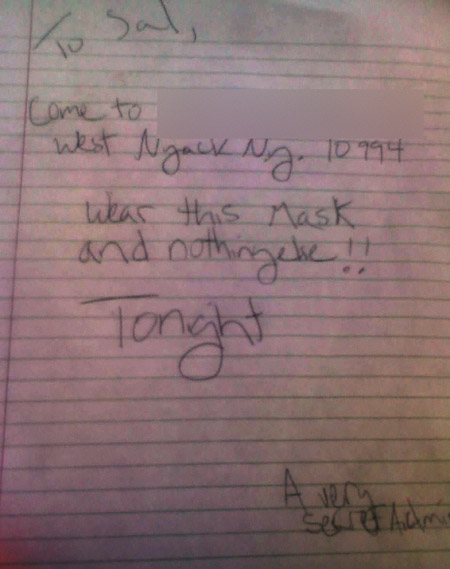 To Sal,
Come to
West Nyack Ny. 10994
Wear this Mask
and nothing else!!
Tonght
A very
secret Admi